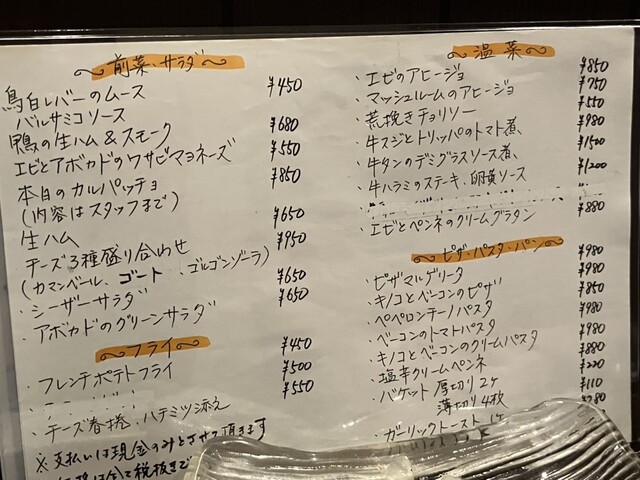 〜前菜、サラダ〜
鳥白レバーのムース ¥450
バルサミコソース
鴨の生ハム&スモーク ¥680
エビとアボカドのワサビマヨネーズ ¥550
本日のカルパッチョ ¥850
(内容はスタッフまで)
生ハム ¥650
チーズ3種盛り合わせ ¥950
(カマンベール、ゴート、ゴルゴンゾーラ)
・シーザーサラダ ¥650
・アボカドのグリーンサラダ ¥650
〜フライ〜
・フレンチポテトフライ ¥450
¥500
・チーズ春捲、ハチミツ添え ¥550
※支払いは現金のみとさせて頂きます
税抜きで
〜温菜〜
・エビのアヒージョ ¥850
・マッシュルームのアヒージョ ¥750
・荒挽きチョリソー ¥550
・牛スジとトリッパのトマト煮、 ¥980
・牛タンのデミグラスソース煮、 ¥1500
・牛ハラミのステーキ、卵黄ソース ¥1200
・エビとペンネのクリームグラタン ¥880
〜ピザ・パスタ・パン〜
・ピザマルゲリータ ¥980
・キノコとベーコンのピザ ¥980
・ペペロンチーノパスタ ¥850
・ベーコンのトマトパスタ ¥980
・キノコとベーコンのクリームパスタ ¥980
・塩辛クリームペンネ ¥880
・バゲット 厚切り2ヶ ¥220
薄切り4枚 ¥110
・ガーリックトースト1ヶ